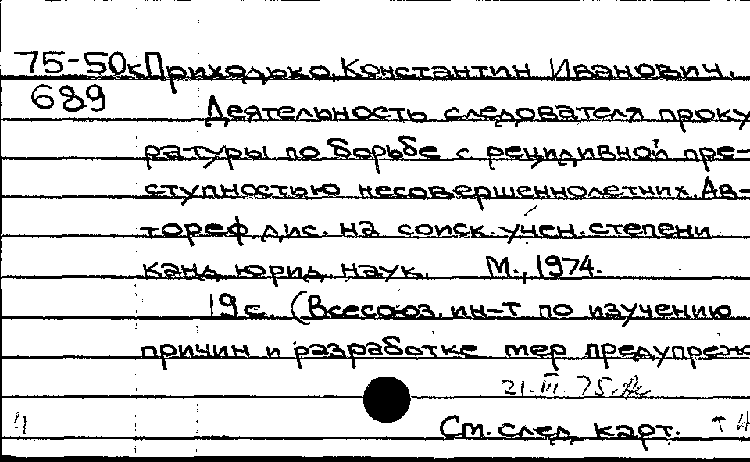 75-50к Приходько, Константин Иванович.
689 Деятельность следователя проку
ратуры по борьбе с рецидивной пре-
ступностью несовершеннолетних. Ав-
тореф. дис. на соиск. учен. степени
канд. юрид. наук. М., 1974.
19 с. (Всесоюз. ин-т по изучению
причин и разработке мер предупреж
21.III.75.
См. след. карт.